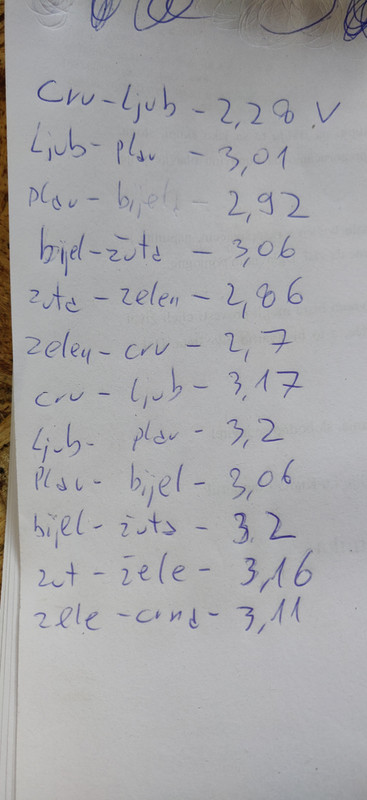 Crv-Ljub - 2,28 V
Ljub- plav - 3,01
plav - bijela - 2,92
bijel-žuta - 3,06
žuta - zelen - 2,86
zelen - crv - 2,7
crv - Ljub - 3,17
Ljub- plav - 3,2
Plav - bijel - 3,06
bijel-žuta - 3,2
žut - zele - 3,16
zele - crna - 3,11